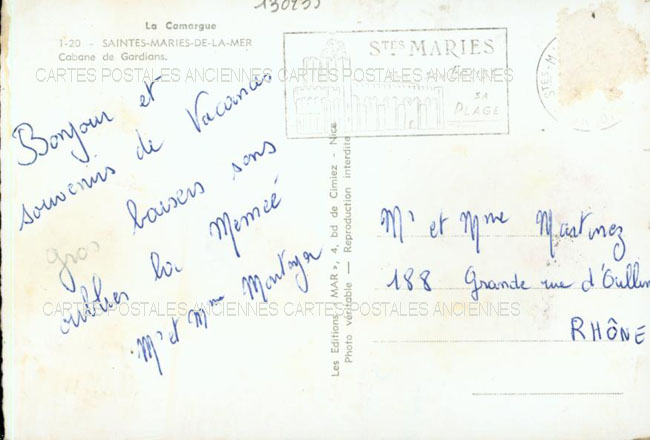 130233
La Camargue
1-20 - SAINTES-MARIES-DE-LA-MER
Cabane de Gardians.
STES MARIES
SA
PLAGE
STES-M
CARTES POSTALES ANCIENNES CARTES POSTALES ANCIENNES CARTES POSTALES ANCIENNES
Bonjour et
souvenirs de Vacances
gros baisers sans
oublier la
Mr et Mme
Les Editions « MAR », 4, bd de Cimiez - Nice
Photo véritable — Reproduction interdite
Mr et Mme Martinez
188 Grande rue d'Oullin
RHÔNE
CARTES POSTALES ANCIENNES CARTES POSTALES ANCIENNES CARTES POSTALES ANCIENNES